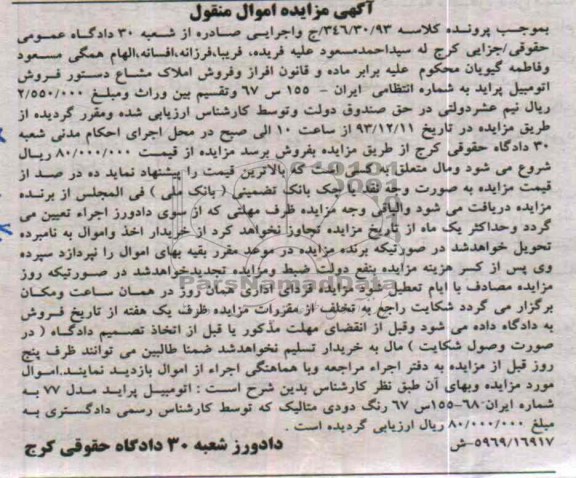 آگهی مزایده اموال منقول
بموجب پرونده کلاسه ۳٤٦/۳۰/۹۳/ج واجرایی صادره از شعبه ۳۰ دادگاه عمومی
حقوقی/جزایی کرج له سیداحمدمسعود علیه فریده، فریبا،فرزانه،افسانه،الهام همگی مسعود
وفاطمه گیویان محکوم علیه برابر ماده و قانون افراز وفروش املاک مشاع دستور فروش
اتومبیل پراید به شماره انتظامی ایران - ۱۵۵ س ۶۷ وتقسیم بین وراث ومبلغ ۲/۵۵۰/۰۰۰
ریال نیم عشردولتی در حق صندوق دولت وتوسط کارشناس ارزیابی شده ومقرر گردیده از
طریق مزایده در تاریخ ۹۳/۱۲/۱۱ از ساعت ۱۰ الی صبح در محل اجرای احکام مدنی شعبه
۳۰ دادگاه حقوقی کرج از طریق مزایده بفروش برسد مزایده از قیمت ۸۰/۰۰۰/۰۰۰ ریال
شروع می شود ومال متعلق به کسی است که بالاترین قیمت را پیشنهاد نماید ده در صد از
قیمت مزایده به صورت وجه نقد یا چک بانک تضمینی ( بانک ملی ) فی المجلس از برنده
مزایده دریافت می شود والباقی وجه مزایده ظرف مهلتی که از سوی دادورز اجراء تعیین می
گردد وحداکثر یک ماه از تاریخ مزایده تجاوز نخواهد کرد از خریدار اخذ واموال به نامبرده
تحویل خواهدشد در صورتیکه برنده مزایده در موعد مقرر بقیه بهای اموال را نپردازد سپرده
وی پس از کسر هزینه مزایده بنفع دولت ضبط ومزایده تجدیدخواهدشد در صورتیکه روز
مزایده مصادف با ایام تعطیل شد مزایده فردای اداری همان روز در همان ساعت ومکان
برگزار می گردد شکایت راجع به تخلف از مقررات مزایده ظرف یک هفته از تاریخ فروش
به دادگاه داده می شود وقبل از انقضای مهلت مذکور یا قبل از اتخاذ تصمیم دادگاه ( در
صورت وصول شکایت ) مال به خریدار تسلیم نخواهدشد ضمنا طالبین می توانند ظرف پنج
روز قبل از مزایده به دفتر اجراء مراجعه وبا هماهنگی اجراء از اموال بازدید نمایند.اموال
مورد مزایده وبهای آن طبق نظر کارشناس بدین شرح است : اتومبیل پراید مدل ۷۷ به
شماره ایران-۶۸-۱۵۵س ۶۷ رنگ دودی متالیک که توسط کارشناس رسمی دادگستری به
مبلغ ۸۰/۰۰۰/۰۰۰ ریال ارزیابی گردیده است .
۵۹۶۹/۱۶۹۱۷-ش دادورز شعبه ۳۰ دادگاه حقوقی کرج
ParsNamadData